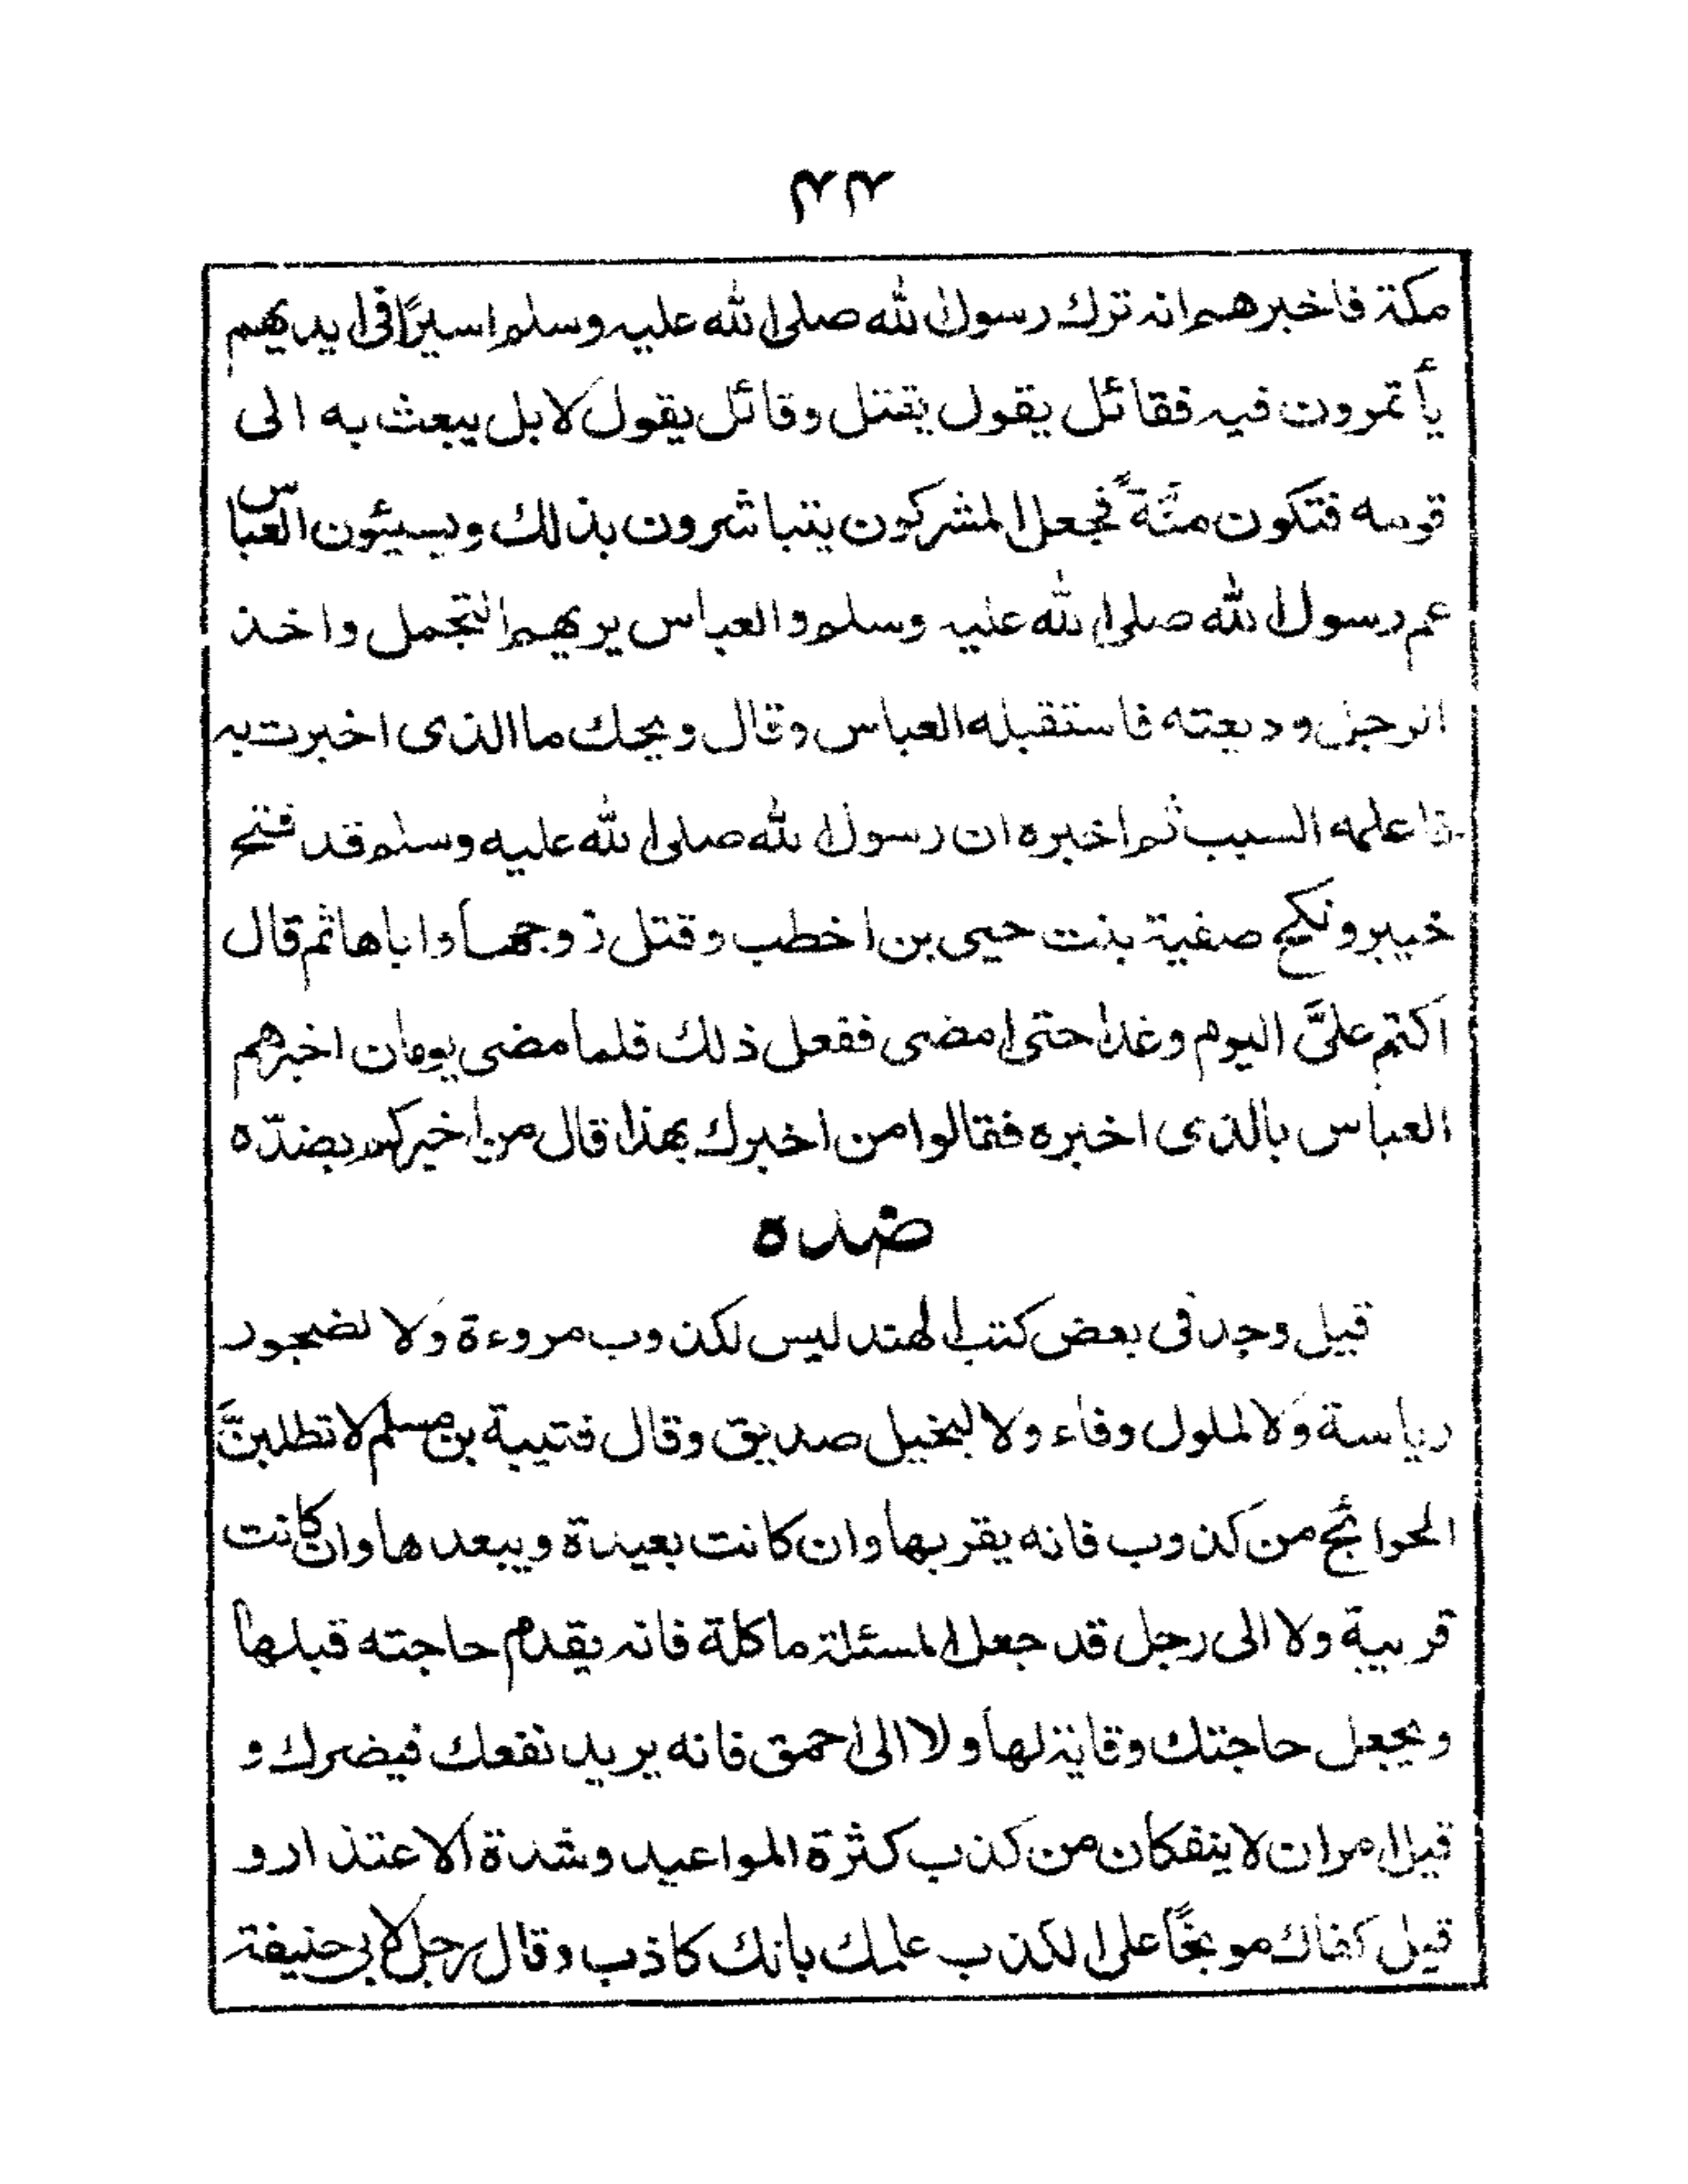 ٤٤
مكة فاخبرهم انه ترك رسول الله صلى الله عليه وسلم اسيرًا في ايديهم
يأتمرون فيه فقائل يقول يقتل وقائل يقول لا بل يبعث به الى
قومه فتكون منَّةً فجعل المشركون يتباشرون بذلك ويسيئون العباس
عم رسول الله صلى الله عليه وسلم والعباس يريهم التجمل واخذ
الرجل وديعته فاستقبله العباس وقال ويحك ما الذى اخبرت به
فاعلمه السبب ثم اخبره ان رسول الله صلى الله عليه وسلم قد فتح
خيبر ونكح صفية بنت حيى بن اخطب وقتل زوجها واباها ثم قال
اكتم علىَّ اليوم وغدا حتى امضى ففعل ذلك فلما مضى يومان اخبرهم
العباس بالذى اخبره فقالوا من اخبرك بهذا قال من اخبركم بضدّه
ضده
قيل وجد فى بعض كتب الهند ليس لكذوب مروءة ولا لضجور
رياسة ولا لملول وفاء ولا لبخيل صديق وقال قتيبة بن مسلم لا تطلبنَّ
الحوائج من كذوب فانه يقربها وان كانت بعيدة ويبعدها وان كانت
قريبة ولا الى رجل قد جعل المسئلة ماكلة فانه يقدم حاجته قبلها
ويجعل حاجتك وقاية لها ولا الى احمق فانه يريد نفعك فيضرك و
قيل امران لا ينفكان من كذب كثرة المواعيد وشدة الاعتذار و
قيل كفاك موبخًا على الكذب علمك بانك كاذب وقال رجل لابى حنيفة